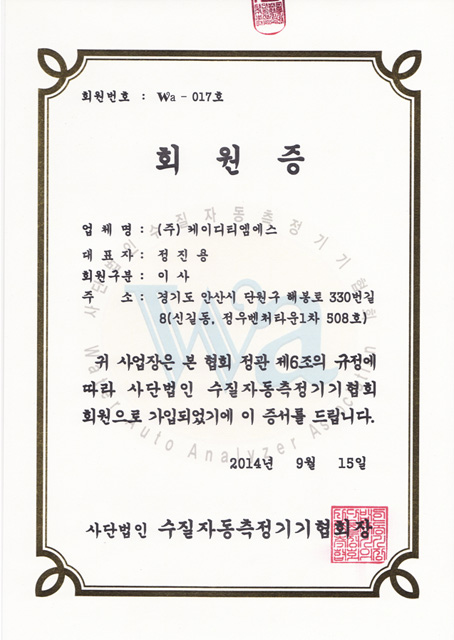 회원번호 : Wa - 017호
회 원 증
업 체 명 : (주) 케이디티엠에스
대 표 자 : 정 진 용
회원구분 : 이 사
주 소 : 경기도 안산시 단원구 해봉로 330번길
8(신길동, 정우벤처타운1차 508호)
귀 사업장은 본 협회 정관 제6조의 규정에
따라 사단법인 수질자동측정기기협회
회원으로 가입되었기에 이 증서를 드립니다.
2014년 9월 15일
사단법인 수질자동측정기기협회장
사단법인 수질자동측정기기협회
Wa
Water Auto Analyzer Association